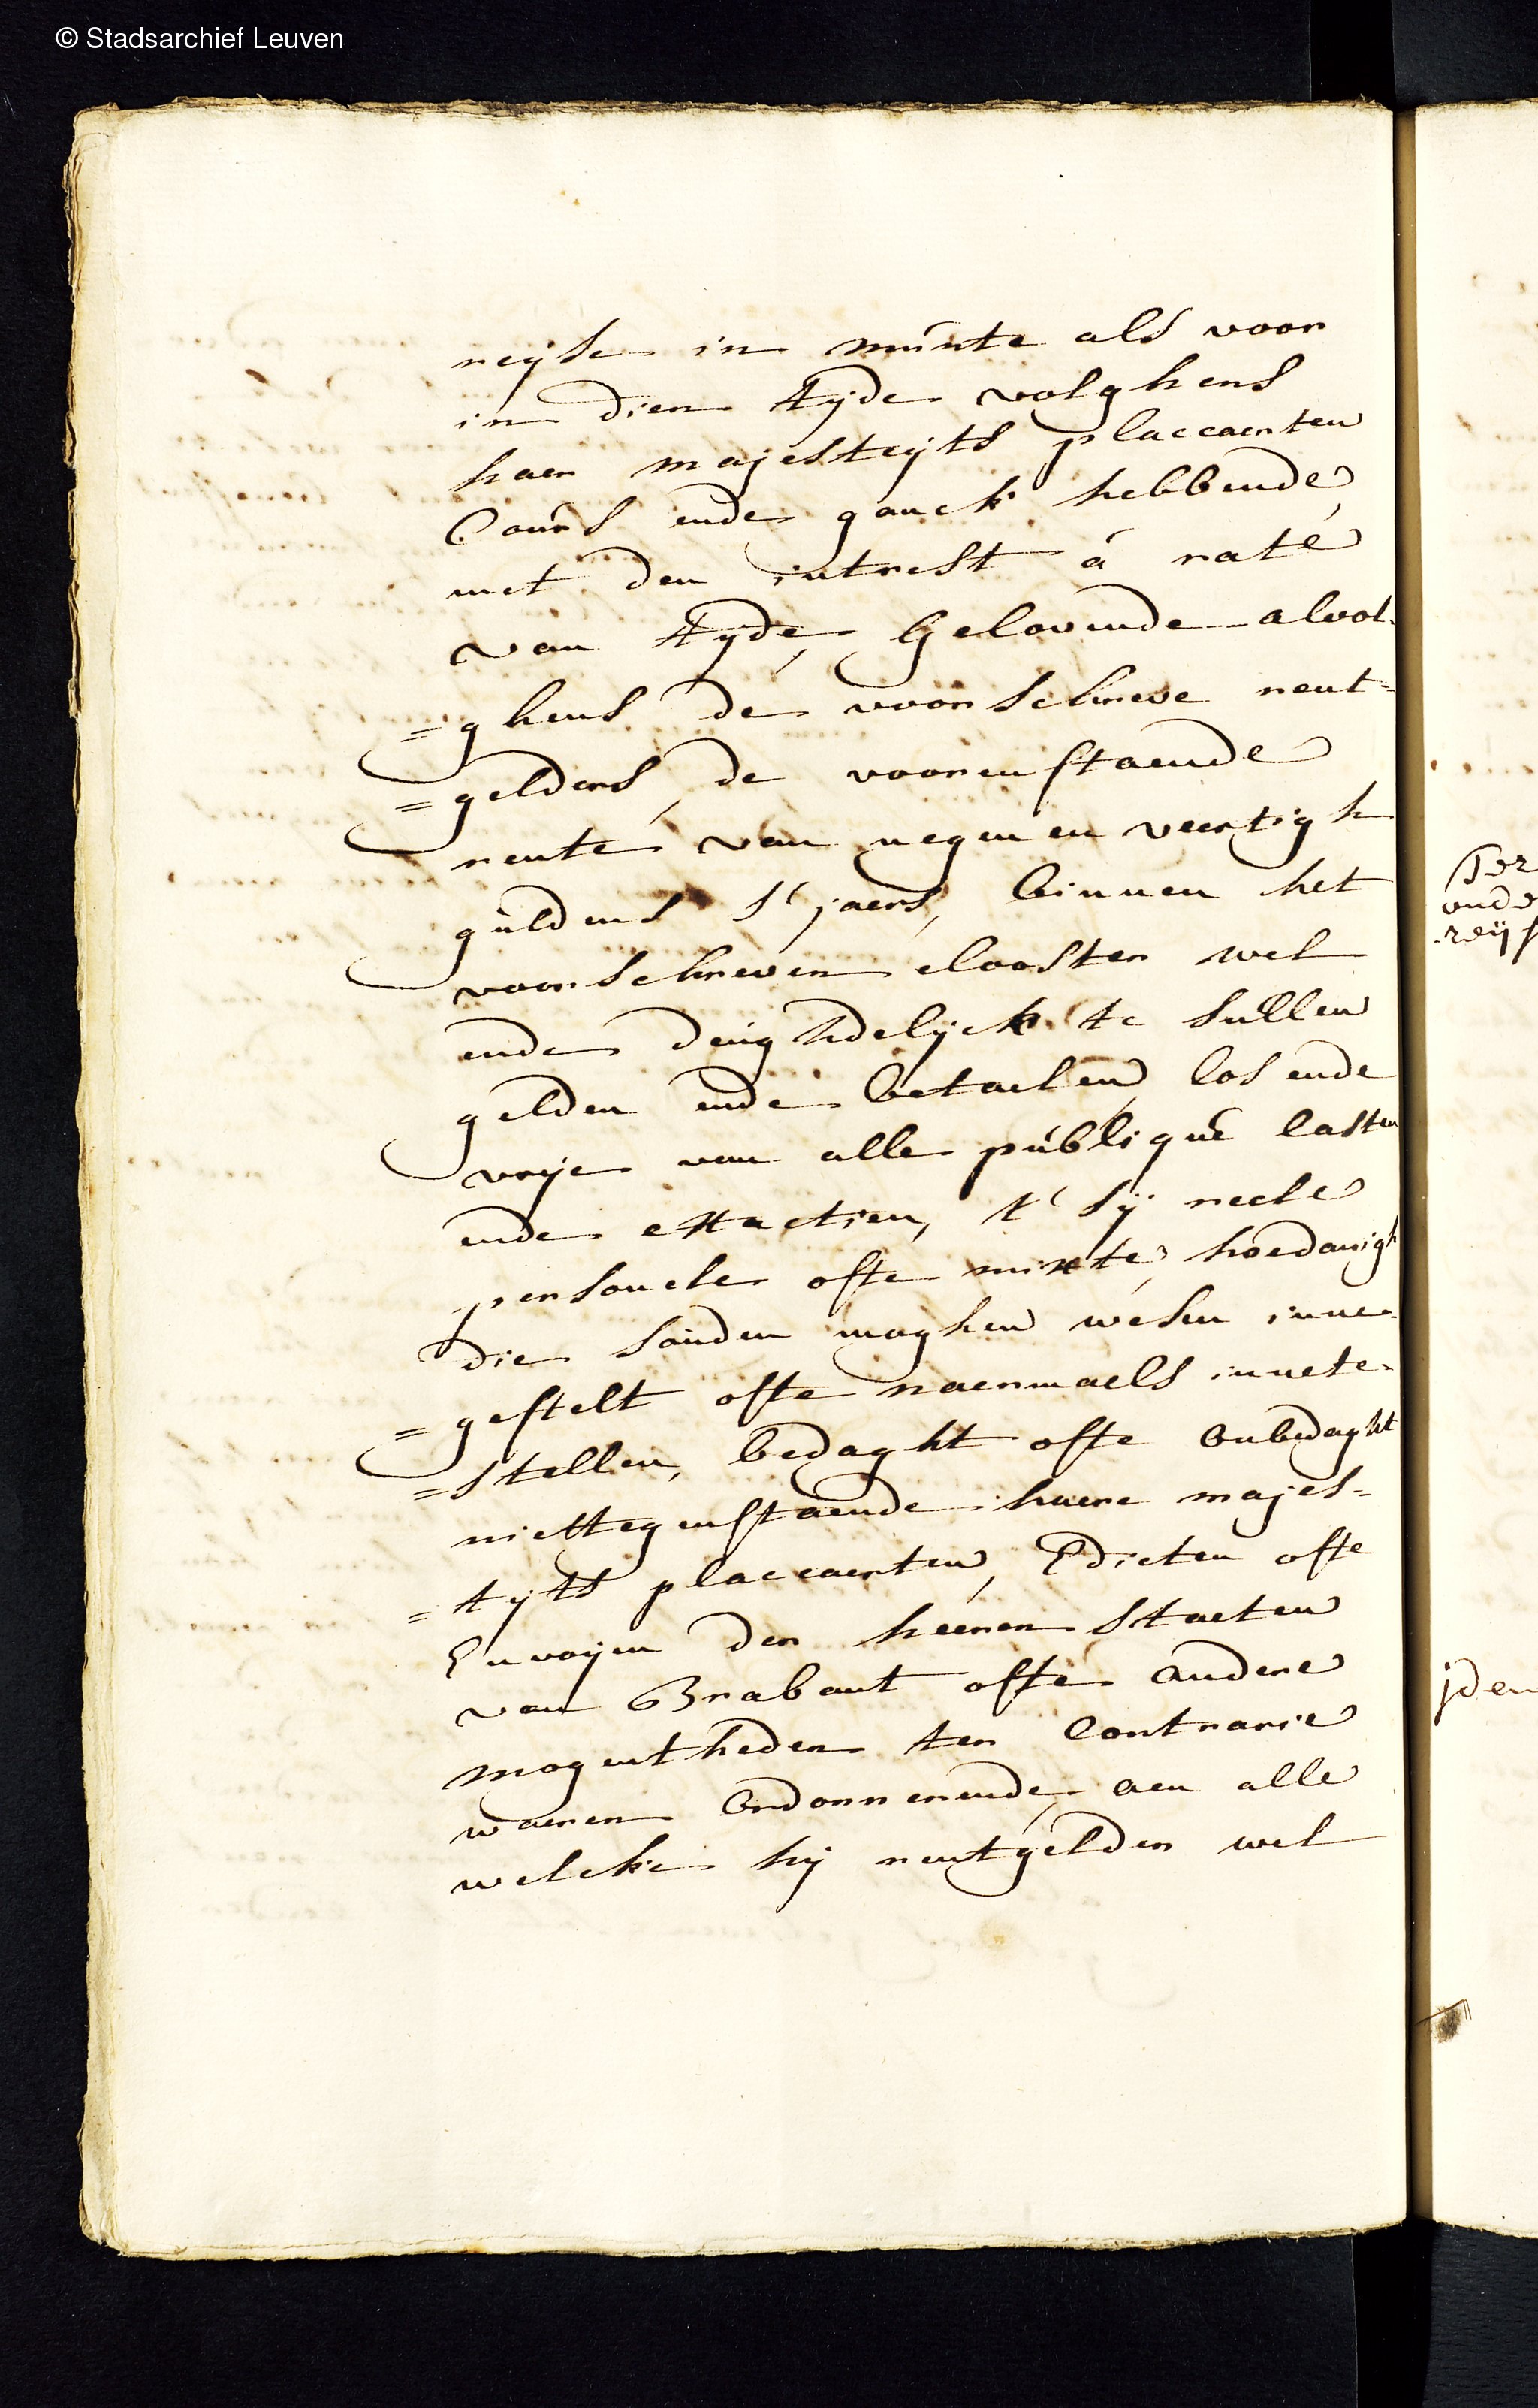 © Stadsarchief Leuven
reijse in munte als voor
in dien tyde volghens
haer majesteijts placcaerten
Cours ende ganck hebbende
met den intrest á raté
van tyde, Gelovende alvol-
=ghens de voorschreve rent=
=gelders, de voorenstaende
rente van negen en veertigh
guldens s'jaers, binnen het
voorschreven clooster wel
ende deughdelijck te sullen
gelden ende betaelen, los ende
vrije van alle publique lasten
ende exactien, t' sij reele
personele ofte mixte, hoedanigh
die souden moghen wesen inne-
=gestelt ofte naermaels innete-
=stellen, bedaght ofte onbedaght
niettegenstaende haere majes=
=tyts placcaerten, Edicten ofte
Envoijen der heeren Staeten
van Brabant ofte andere
mogentheden ter Contrarie
waeren Ordonnerende, aen alle
welcke hij rentgelder wel
Ter
onde
reijs
jden